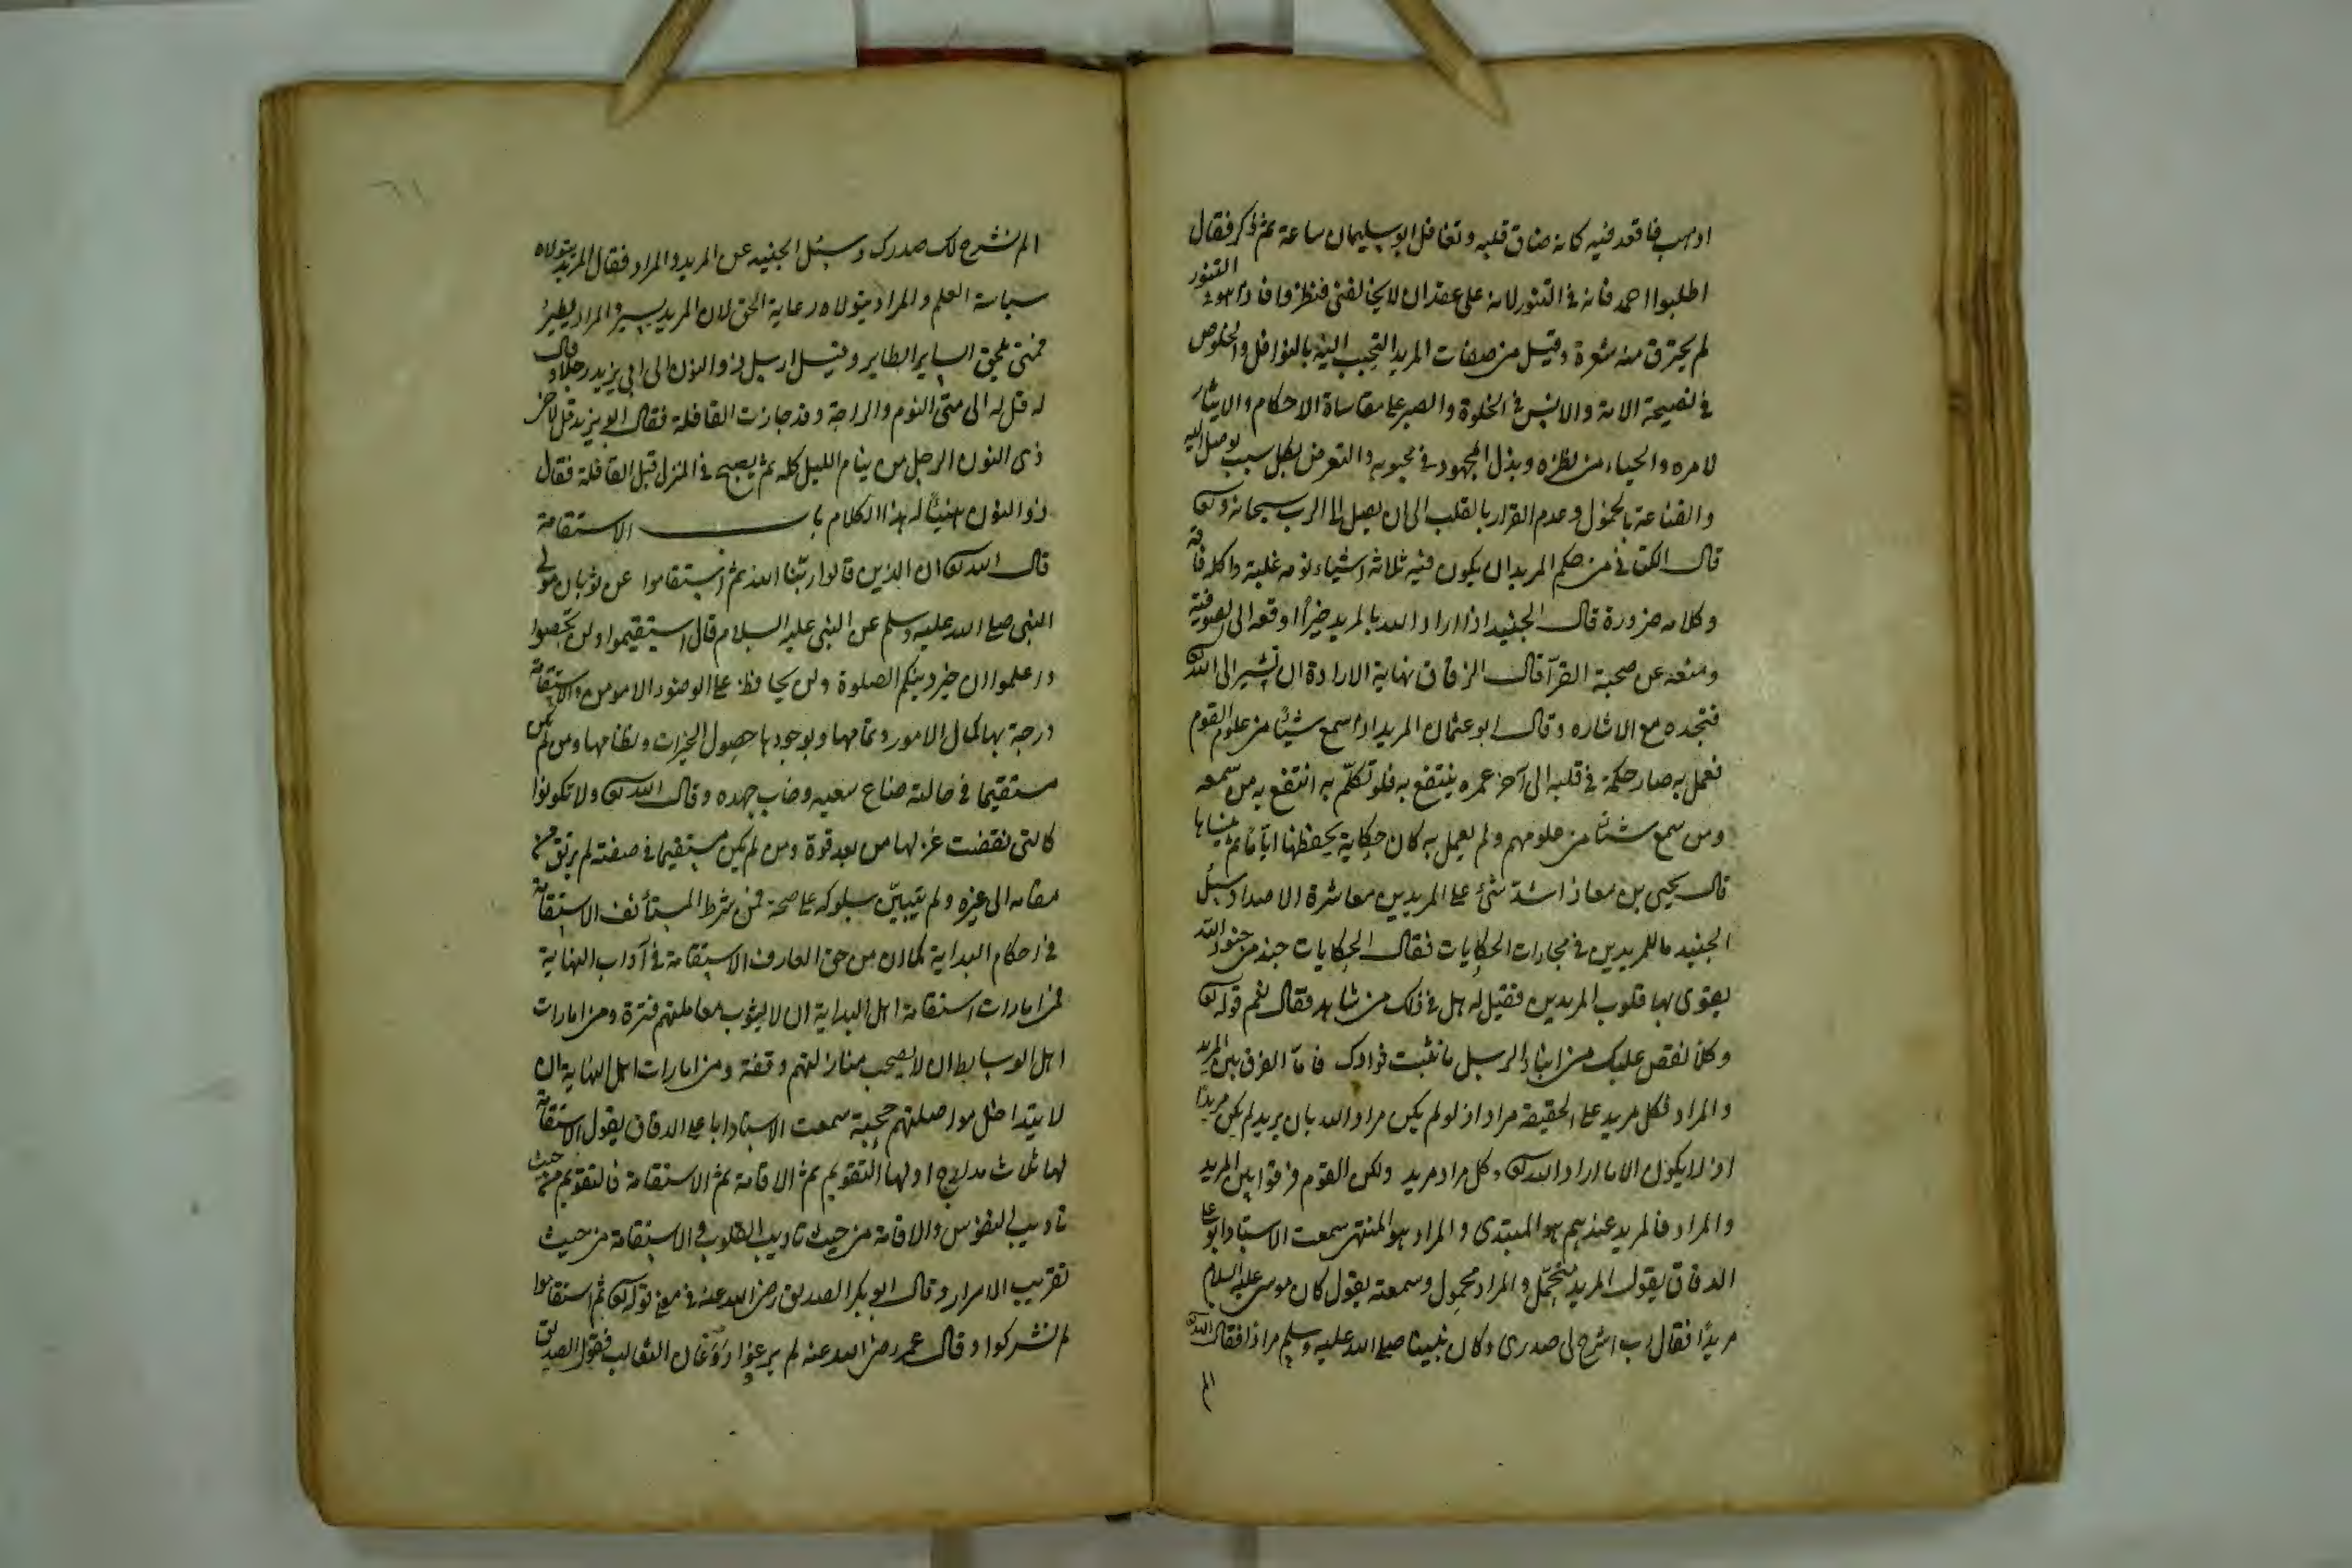 اذهب فاقعد فيه كانه ضاق قلبه وتغافل ابو سليمان ساعة ثم ذكر فقال
اطلبوا احمد فانه في التنور لانه على عقد ان لا يخالفني فنظروا فاذا هو في التنور
لم يحترق منه شعرة وقيل من صفات المريد التحبب اليه بالنوافل والخلوص
في نصيحة الامة والانس في الخلوة والصبر على مقاساة الاحكام والايثار
لامره والحياء من نظره وبذل المجهود في محبوبه والتعرض لكل سبب يوصل اليه
والقناعة بالخمول وعدم القرار بالقلب الى ان يصل الى الرب سبحانه وتع
قال الكتاني من حكم المريد ان يكون فيه ثلاثة اشياء نومه غلبة واكله فاقة
وكلامه ضرورة قال الجنيد اذا اراد الله بالمريد خيرًا اوقعه الى الصوفية
ومنعه عن صحبة القرآ قال الزقاق نهاية الارادة ان تشير الى الله تع
فتجده مع الاشاره وقال ابو عثمان المريد اذا سمع شيئًا من علوم القوم
فعمل به صار حكمة في قلبه الى آخر عمره ينتفع به فلو تكلّم به انتفع به من سمعه
ومن سمع شيئًا من علومهم ولم يعمل به كان حكاية يحفظها ايّامًا ثم ينساها
قال يحيى بن معاذ اشدّ شئ على المريدين معاشرة الاضداد وسئل
الجنيد ما للمريدين في مجارات الحكايات فقال الحكايات جند من جنود الله
يقوى بها قلوب المريدين فقيل له هل في ذلك من شاهد فقال نعم قوله تع
وكلا نقص عليك من انباء الرسل ما نثبت به فؤادك فامّا الفرق بين المريد
والمراد فكل مريد على الحقيقة مراد اذ لو لم يكن مراد الله بان يريد لم يكن مريدًا
اذ لا يكون الا ما اراد الله تع وكل مراد مريد ولكن القوم فرقوا بين المريد
والمراد فالمريد عندهم هو المبتدى والمراد هو المنتهى سمعت الاستاد ابو على
الدقاق يقول المريد متحمّل والمراد محمول وسمعته يقول كان موسى عليه السلام
مريدًا فقال رب اشرح لى صدرى وكان نبينا صلى الله عليه وسلم مرادا فقال الله تع
الم
٦١
الم نشرح لك صدرك وسئل الجنيد عن المريد والمراد فقال المريد يتولاه
سياسة العلم والمراد يتولاه رعاية الحق لان المريد يسير والمراد يطير
فمتى يلحق الساير الطاير وقيل ارسل ذو النون الى ابى يزيد رجلا وقال
له قل له الى متى النوم والراحة وقد جازت القافلة فقال ابو يزيد قل لاخى
ذى النون الرجل من ينام الليل كله ثم يصبح في المنزل قبل القافلة فقال
ذو النون هنيئًا له هذا الكلام باب الاستقامة
قال الله تع ان الذين قالوا ربّنا الله ثم استقاموا عن ثوبان مولى
النبى صلى الله عليه وسلم عن النبى عليه السلام قال استقيموا ولن تحصوا
واعلموا ان خير دينكم الصلوة ولن يحافظ على الوضوء الا مؤمن والاستقامة
درجة بها كمال الامور وتمامها وبوجودها حصول الخيرات ونظامها ومن لم يكن
مستقيما في حالته ضاع سعيه وخاب جهده وقال الله تع ولا تكونوا
كالتى نقضت غزلها من بعد قوة ومن لم يكن مستقيما في صفته لم يرتق من
مقامه الى غيره ولم يتبيّن سلوكه على صحة فمن شرط المستأنف الاستقامة
في احكام البداية كما ان من حق العارف الاستقامة في آداب النهاية
فمن امارات استقامة اهل البداية ان لا يشوب معاملتهم فترة ومن امارات
اهل الوسايط ان لا يصحب منازلتهم وقفة ومن امارات اهل النهاية ان
لا يتداخل مواصلتهم حجبة سمعت الاستاد ابا على الدقاق يقول الاستقامة
لها ثلاث مدارج اولها التقويم ثم الاقامة ثم الاستقامة فالتقويم من حيث
تاديب النفوس والاقامة من حيث تاديب القلوب والاستقامة من حيث
تقريب الاسرار وقال ابو بكر الصديق رضى الله عنه في معنى قوله تع ثم استقاموا
لم يشركوا وقال عمر رضى الله عنه لم يروغوا روغان الثعالب فقول الصديق